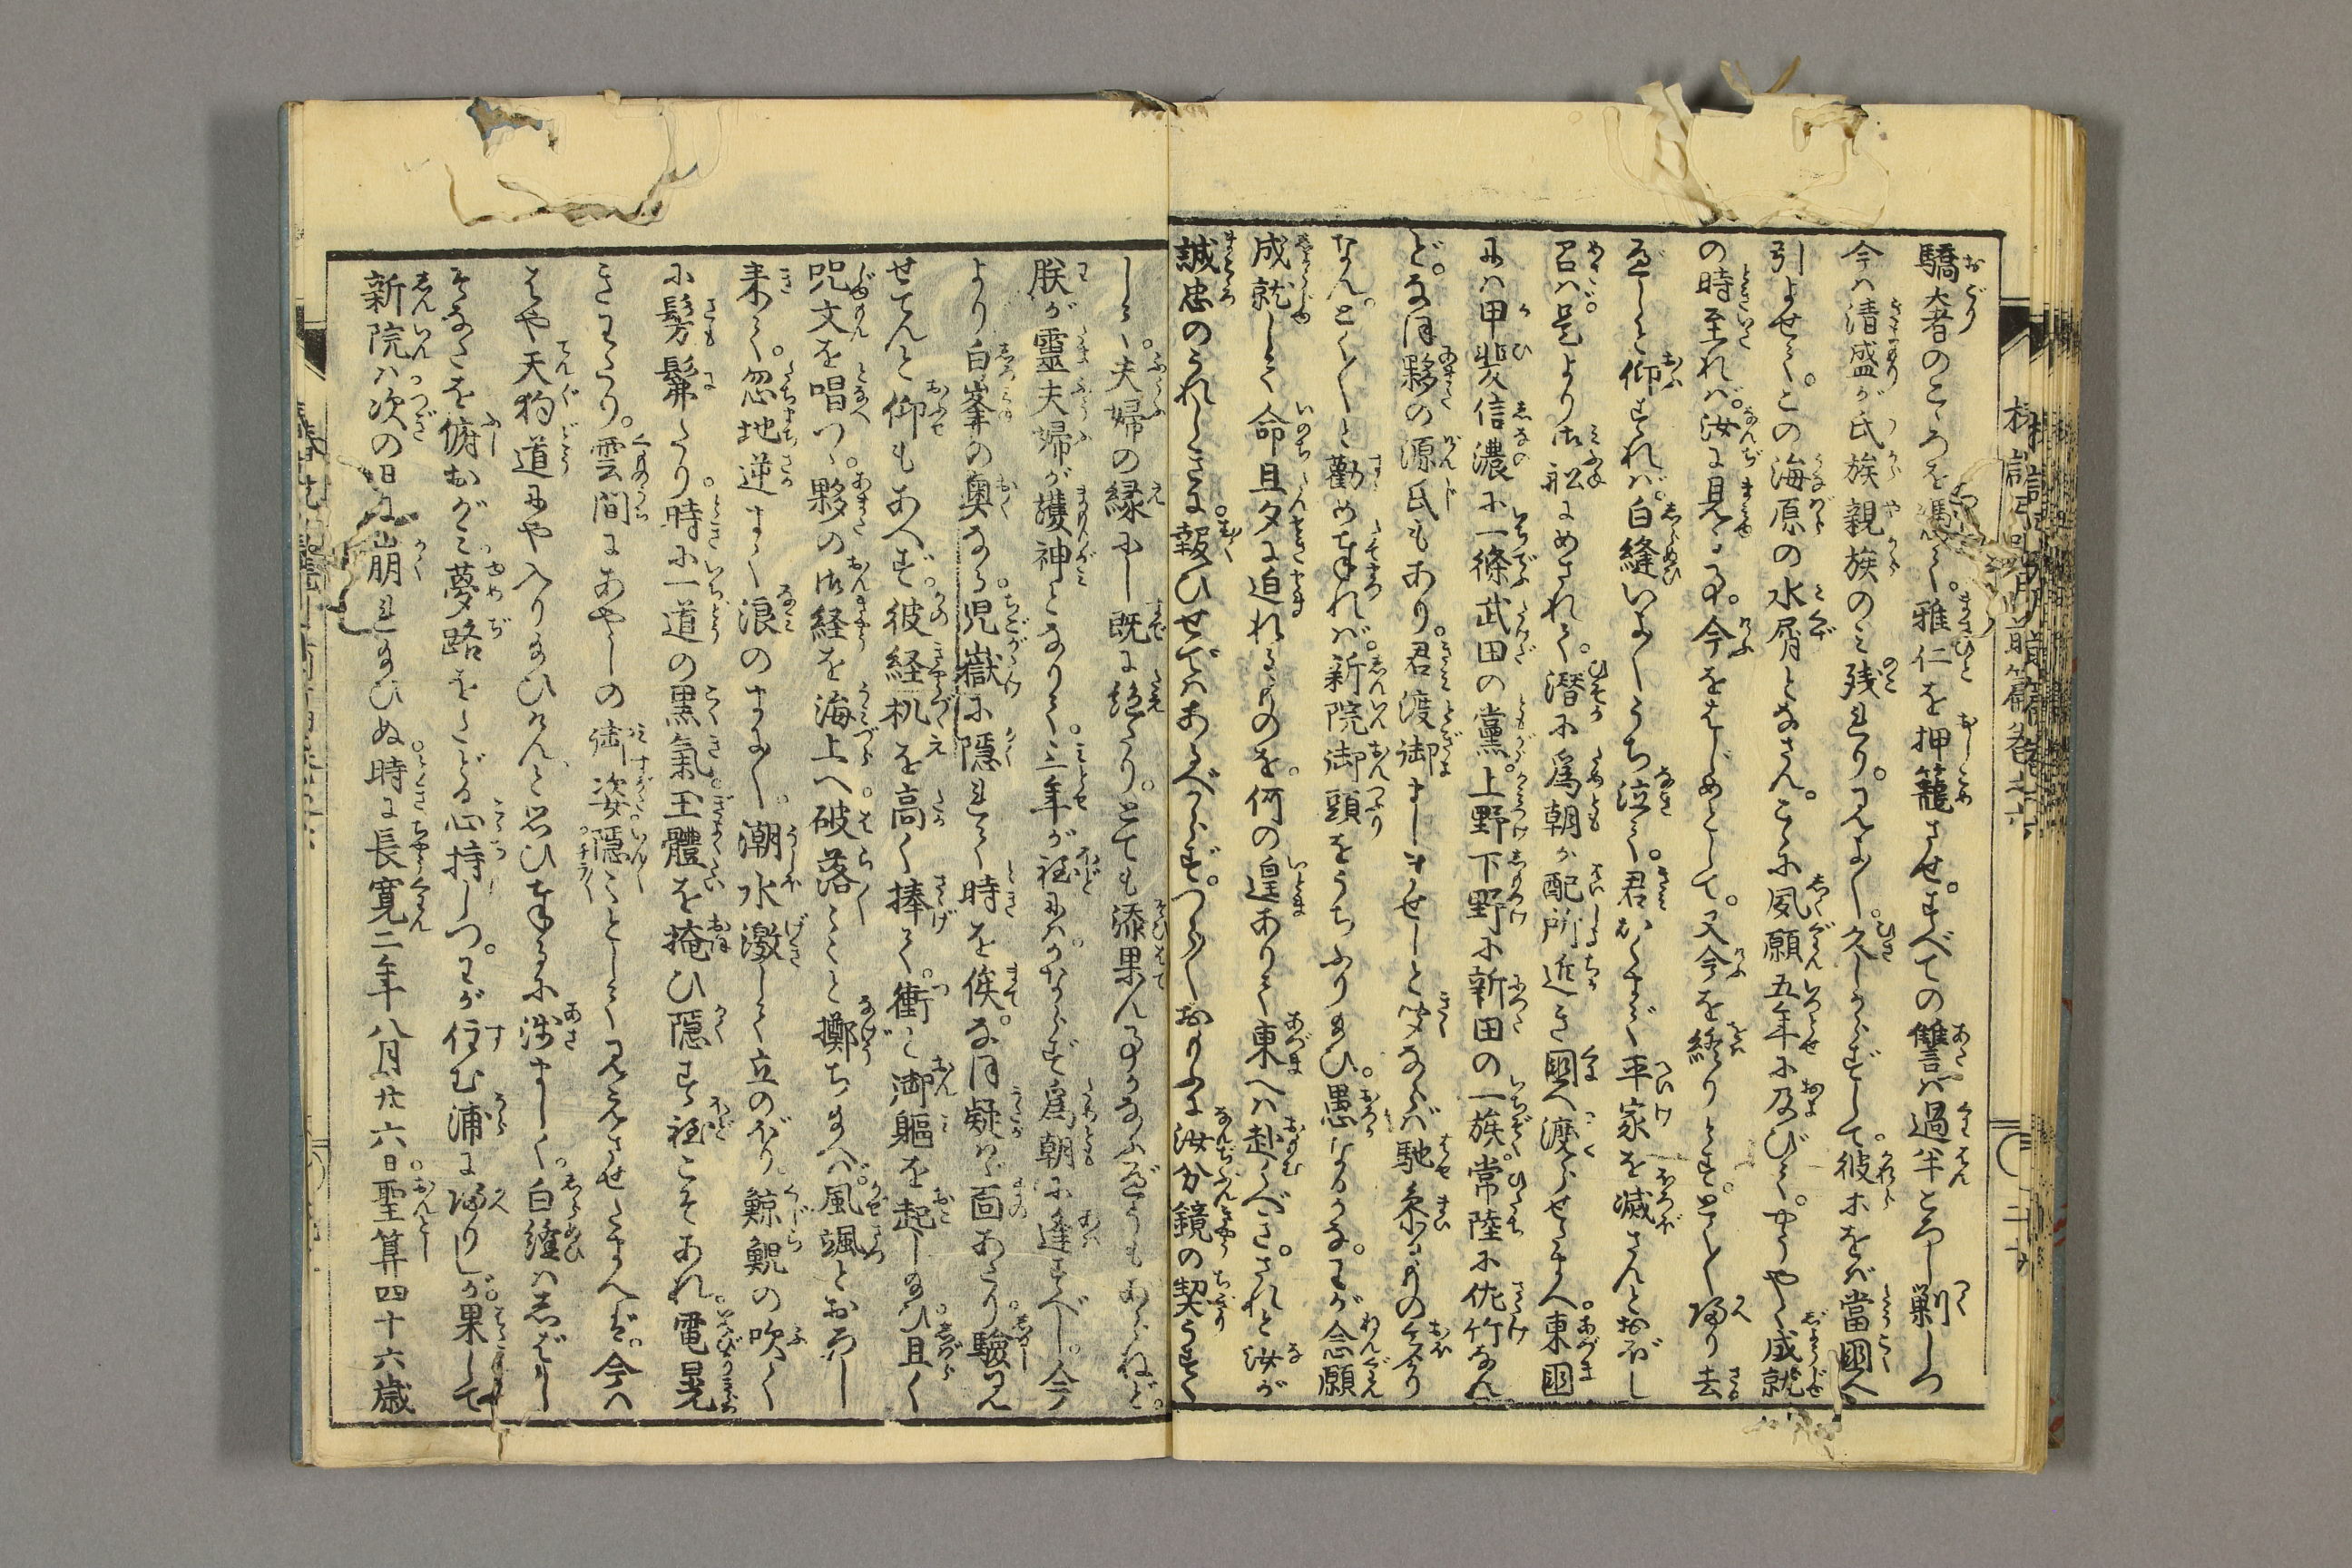 椿説弓張月前篇巻之六
驕者のこゝろを馮て。雅仁を押籠させ。すべての讐は過半ころし剿しつ
今は清盛が氏族親族のみ残れり。見よ〳〵。久しからずして彼ホをば當國へ
引よせて。この海原の水屑となさん。こゝに夙願五年に及びて。やうやく成就
の時至れば。汝に見ゆる事。今をはじめとして。又今を終りとす。とく〳〵帰り去
べしと仰すれば。白縫いよ〳〵うち泣て。君かくまで平家を滅さんとおぼし
召ば。是より御舩にめされて。潜に為朝が配所近き國へ渡らせ給へ。東國
には甲斐信濃に一條武田の黨。上野下野に新田の一族。常陸に佐竹なん
ど。なほ夥の源氏もあり。君渡御ましませしと聞ならば馳参るもの多かり
なん。とく〳〵と勸め奉れば。新院御頭をうちふり給ひ。愚なるかな。わが念願
成就して命旦夕に迫れるものを。何の遑ありて東へは赴くべき。されど汝が
誠忠のうれしきに。報ひせではあるべからず。つら〳〵おもふに汝分鏡の契うすく
して。夫婦の縁にし既に絶たり。とても添果ん事かなふべうもあらねど。
朕が靈夫婦が護神となりて。三年が程には。かならず為朝に逢すべし。今
より白峯の奥なる。児嶽に隠れて時を俟。なほ疑はゞ面あたり。驗を見
せてんと仰もあへず。彼経机を高く捧て。衝と御軀を起し給ひ。且く
呪文を唱つゝ。夥の御経を海上へ破落〻〻と擲ち給へば。風颯とおろし
来て。忽地逆まく浪のまに〳〵。潮水激して立のぼり。鯨鯢の吹く
に髣髴たり。時に一道の黒氣。玉體を掩ひ隠す程こそあれ。電晃
きわたり。雲間にあやしの御姿。隠〻として見えさせたまへど。今は
はや天狗道にや入り給ひけんと思ひ奉るに浅ましく。白縫はしばし
そなたを俯おがみ夢路をたどる心持しつ。わが住む浦に帰りしが。果して
新院は次の日に崩れ給ひぬ。時に長寛二年八月廿六日。聖算四十六歳